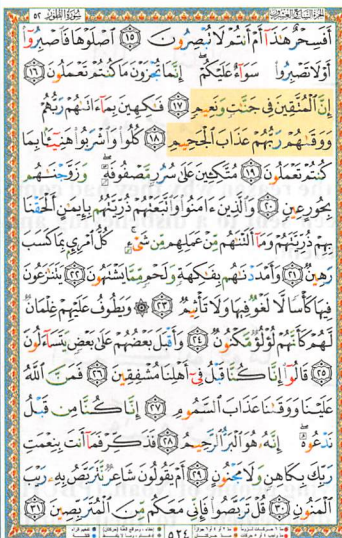 سُورَةُ الطُّورِ ٥٢
أَفَسِحْرٌ هَٰذَا أَمْ أَنتُمْ لَا تُبْصِرُونَ ١٥ اصْلَوْهَا فَاصْبِرُوا
أَوْ لَا تَصْبِرُوا سَوَاءٌ عَلَيْكُمْ إِنَّمَا تُجْزَوْنَ مَا كُنتُمْ تَعْمَلُونَ ١٦
إِنَّ الْمُتَّقِينَ فِي جَنَّٰتٍ وَنَعِيمٍ ١٧ فَٰكِهِينَ بِمَا ءَاتَىٰهُمْ رَبُّهُمْ
وَوَقَىٰهُمْ رَبُّهُمْ عَذَابَ الْجَحِيمِ ١٨ كُلُوا وَاشْرَبُوا هَنِيٓـًٔا بِمَا
كُنتُمْ تَعْمَلُونَ ١٩ مُتَّكِـِٔينَ عَلَىٰ سُرُرٍ مَّصْفُوفَةٍ وَزَوَّجْنَٰهُم
بِحُورٍ عِينٍ ٢٠ وَالَّذِينَ ءَامَنُوا وَاتَّبَعَتْهُمْ ذُرِّيَّتُهُم بِإِيمَٰنٍ أَلْحَقْنَا
بِهِمْ ذُرِّيَّتَهُمْ وَمَا أَلَتْنَٰهُم مِّنْ عَمَلِهِم مِّن شَيْءٍ كُلُّ امْرِئٍ بِمَا كَسَبَ
رَهِينٌ ٢١ وَأَمْدَدْنَٰهُم بِفَٰكِهَةٍ وَلَحْمٍ مِّمَّا يَشْتَهُونَ ٢٢ يَتَنَٰزَعُونَ
فِيهَا كَأْسًا لَّا لَغْوٌ فِيهَا وَلَا تَأْثِيمٌ ٢٣ ۞ وَيَطُوفُ عَلَيْهِمْ غِلْمَانٌ
لَّهُمْ كَأَنَّهُمْ لُؤْلُؤٌ مَّكْنُونٌ ٢٤ وَأَقْبَلَ بَعْضُهُمْ عَلَىٰ بَعْضٍ يَتَسَاءَلُونَ
٢٥ قَالُوا إِنَّا كُنَّا قَبْلُ فِي أَهْلِنَا مُشْفِقِينَ ٢٦ فَمَنَّ اللَّهُ
عَلَيْنَا وَوَقَىٰنَا عَذَابَ السَّمُومِ ٢٧ إِنَّا كُنَّا مِن قَبْلُ
نَدْعُوهُ إِنَّهُ هُوَ الْبَرُّ الرَّحِيمُ ٢٨ فَذَكِّرْ فَمَا أَنتَ بِنِعْمَتِ
رَبِّكَ بِكَاهِنٍ وَلَا مَجْنُونٍ ٢٩ أَمْ يَقُولُونَ شَاعِرٌ نَّتَرَبَّصُ بِهِ رَيْبَ
الْمَنُونِ ٣٠ قُلْ تَرَبَّصُوا فَإِنِّي مَعَكُم مِّنَ الْمُتَرَبِّصِينَ ٣١
٥٢٤